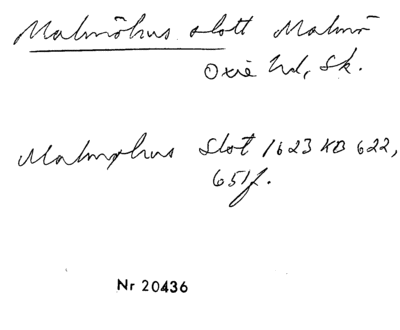 Malmöhus slott Malmö
Oxie hd, Sk.
Malmøhus Slot 1623 KB 622,
651f.
Nr 20436